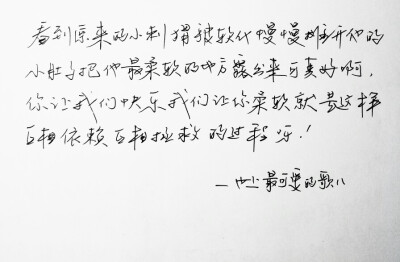 看到原来的小刺猬被软化慢慢摊开他的
小肚子把他最柔软的地方露出来真好啊,
你让我们快乐我们让你柔软就是这样
互相依赖互相拯救的过程呀!
—世上最可爱的歌儿